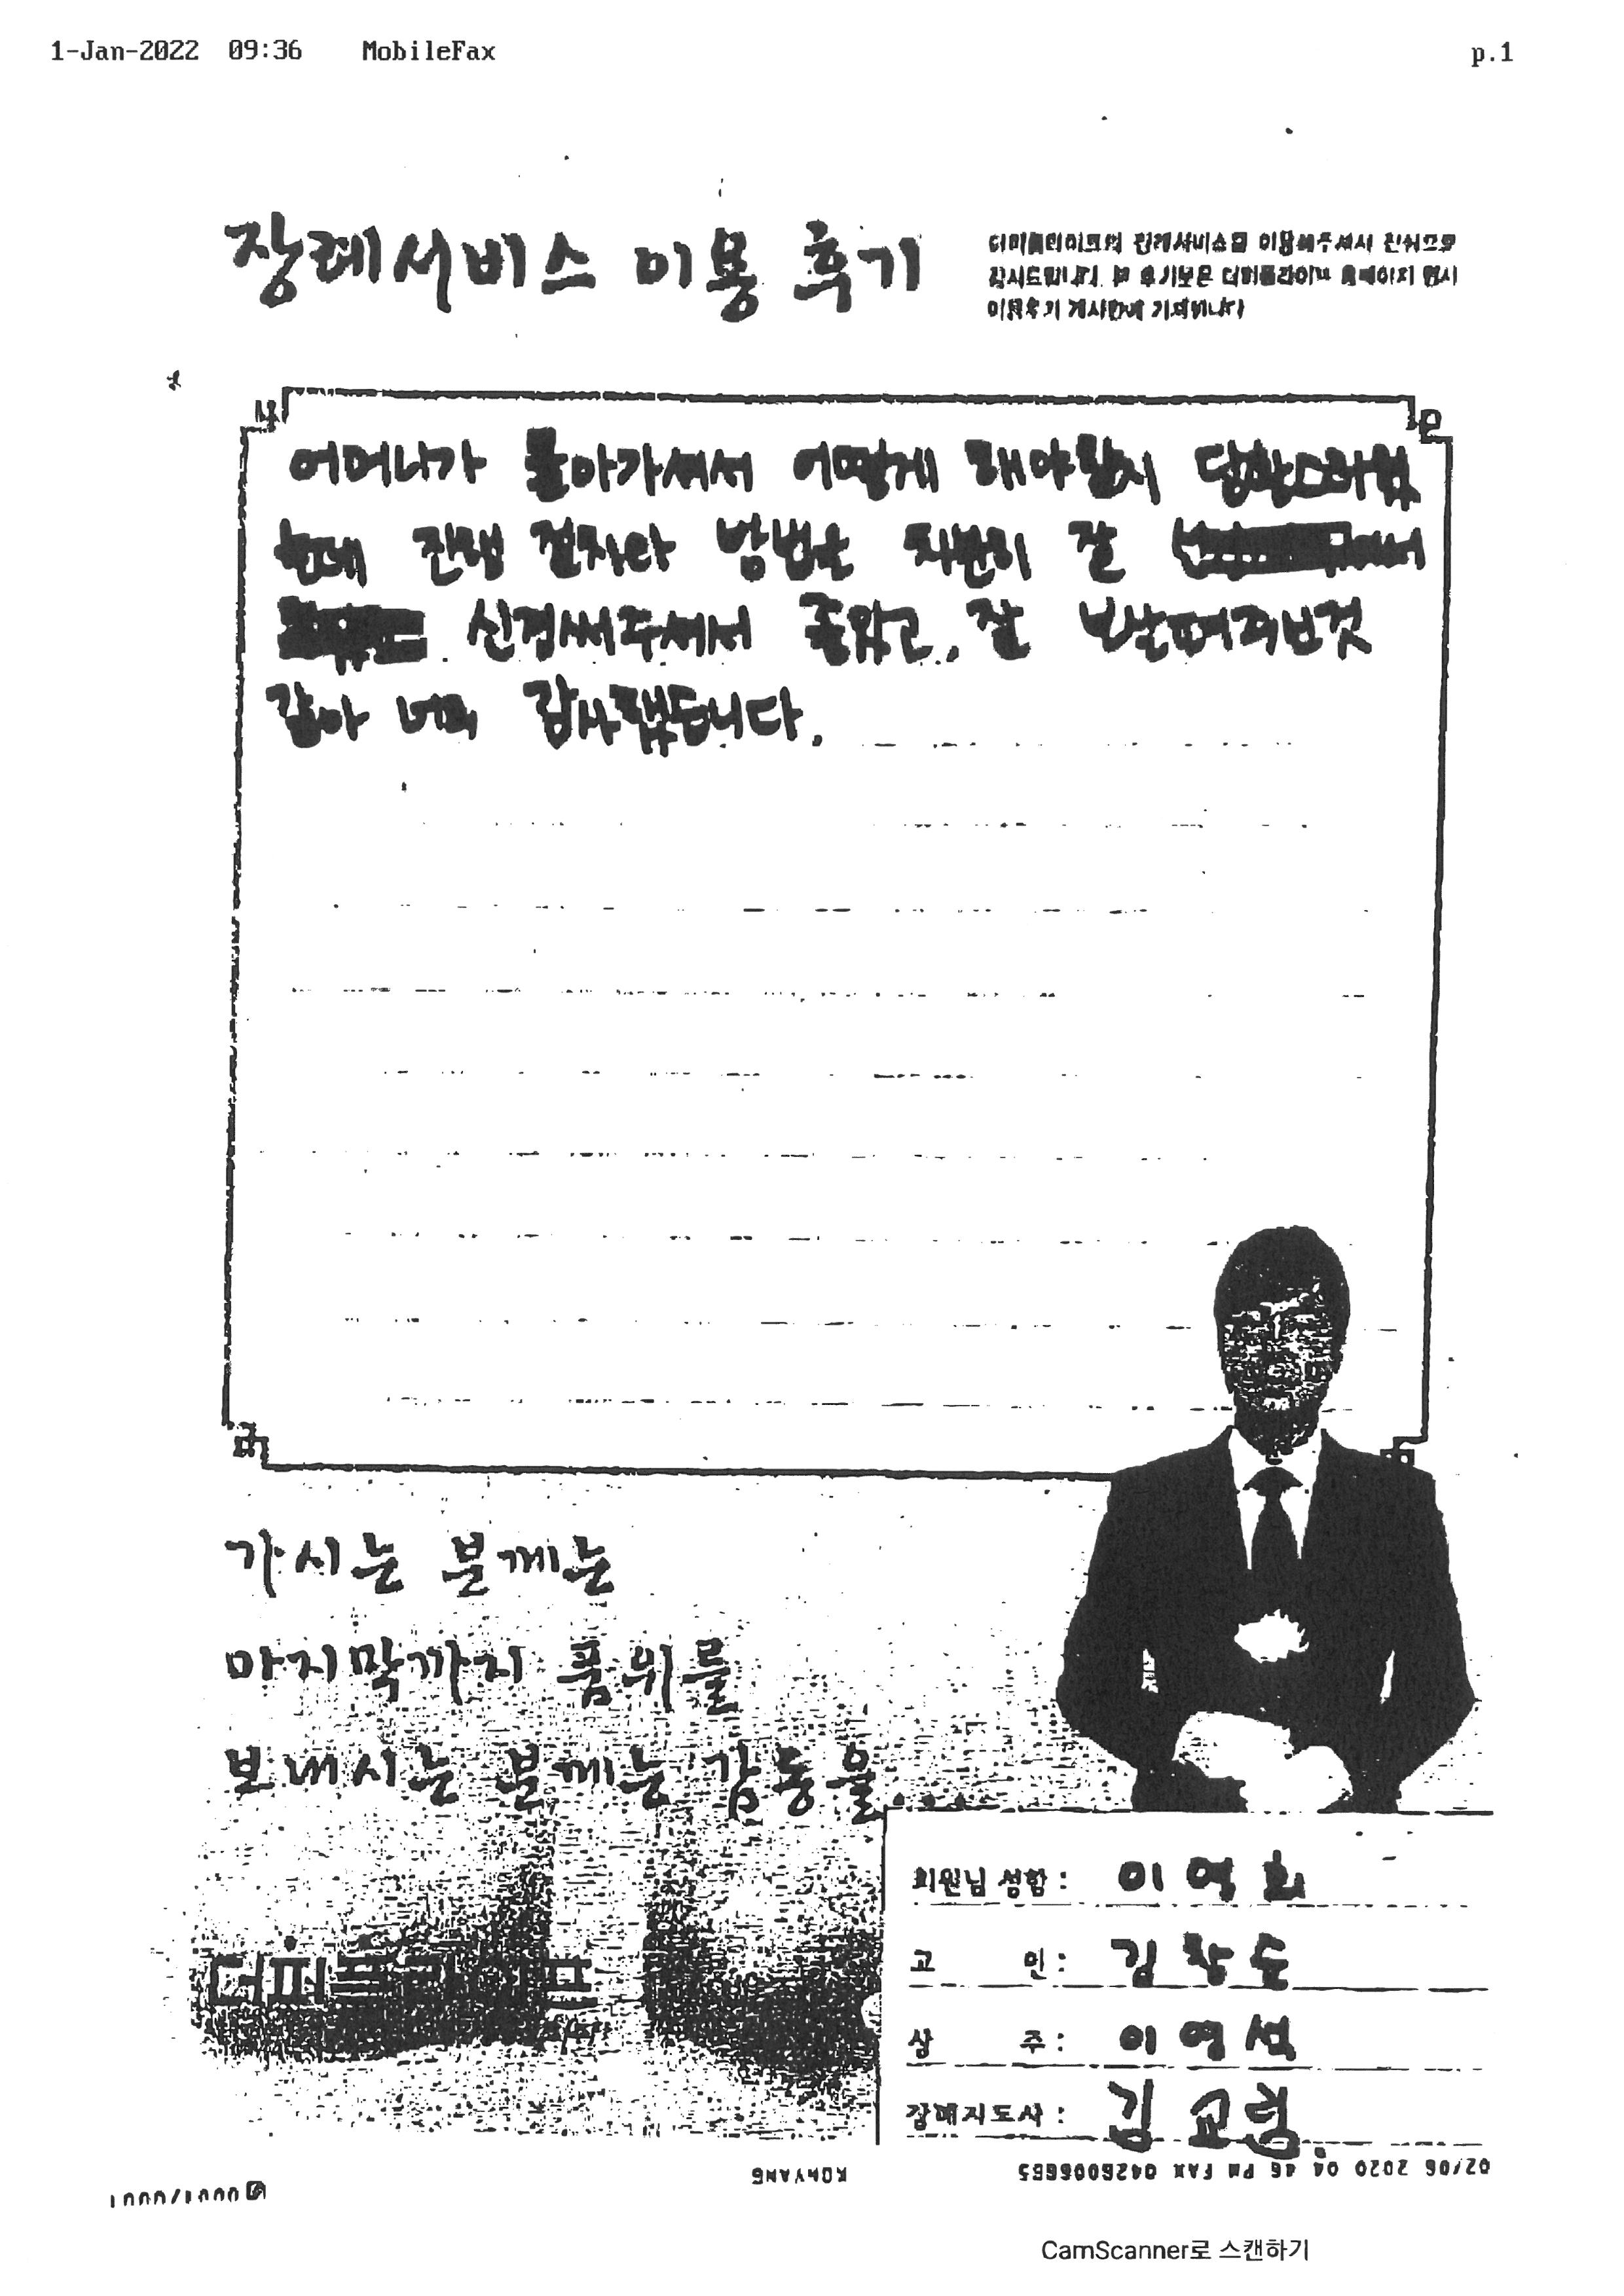 1-Jan-2022 09:36 MobileFax p.1
장례서비스 이용 후기
더피플라이프의 장례서비스를 이용해주셔서 진심으로
감사드립니다. 본 후기보은 더피플라이프 홈페이지 행사
이용후기 게시판에 기재됩니다
어머니가 돌아가셔서 어떻게 해야할지 당황스러웠
는데 진행 절차와 방법을 차분히 잘
신경써주셔서 좋았고, 잘 보살펴주신것
같아 너무 감사했습니다.
가시는 분께는
마지막까지 품위를
보내시는 분께는 감동을
더피플라이프
회원님 성함 : 이영희
고 인 : 김창순
상 주 : 이영석
장례지도사 : 김교령
02/06 2020 04:46 PM FAX
KONYANG
0001/0001
CamScanner로 스캔하기